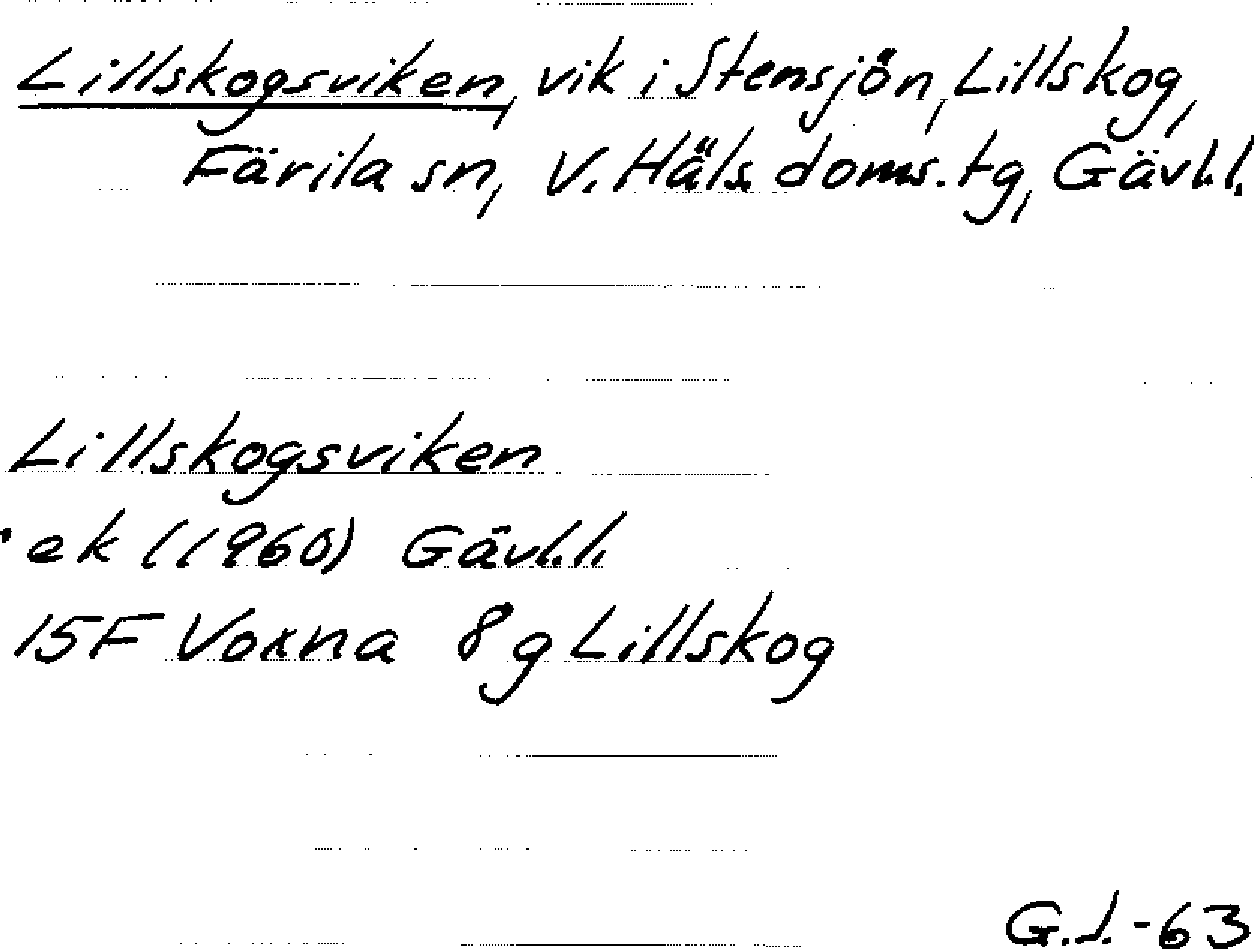 Lillskogsviken, vik i Stensjön, Lillskog,
Färila sn, V. Häls. doms. tg, Gävl.l.
Lillskogsviken
ek (1960) Gävl.l.
15F Voxna 8g Lillskog
G.J.-63